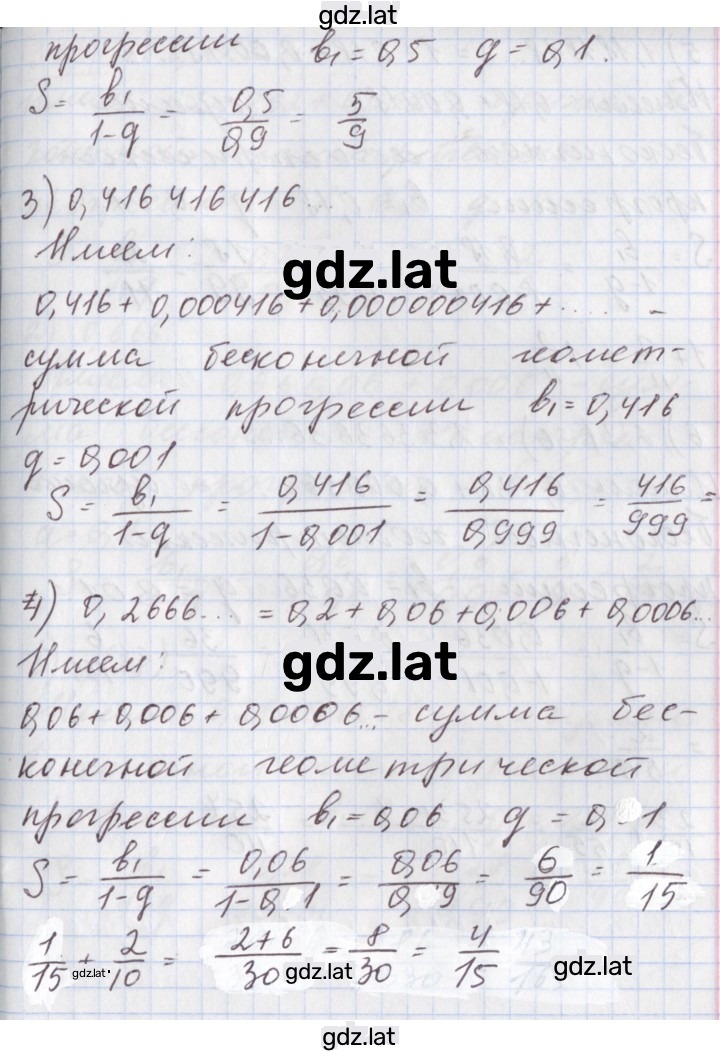 gdz.lat
прогрессии b₁ = 0,5 q = 0,1.
S = b₁/(1-q) = 0,5/0,9 = 5/9
3) 0,416 416 416...
Имеем:
gdz.lat
0,416 + 0,000416 + 0,000000416 + ..... -
сумма бесконечной геомет-
рической прогрессии b₁ = 0,416
q = 0,001
S = b₁/(1-q) = 0,416/(1-0,001) = 0,416/0,999 = 416/999 =
4) 0,2666... = 0,2 + 0,06 + 0,006 + 0,0006...
Имеем:
gdz.lat
0,06 + 0,006 + 0,0006... - сумма бес-
конечной геометрической
прогрессии b₁ = 0,06 q = 0,1
S = b₁/(1-q) = 0,06/(1-0,1) = 0,06/0,9 = 6/90 = 1/15
1/15 + 2/10 = (2+6)/30 = 8/30 = 4/15
gdz.lat
gdz.lat
gdz.lat